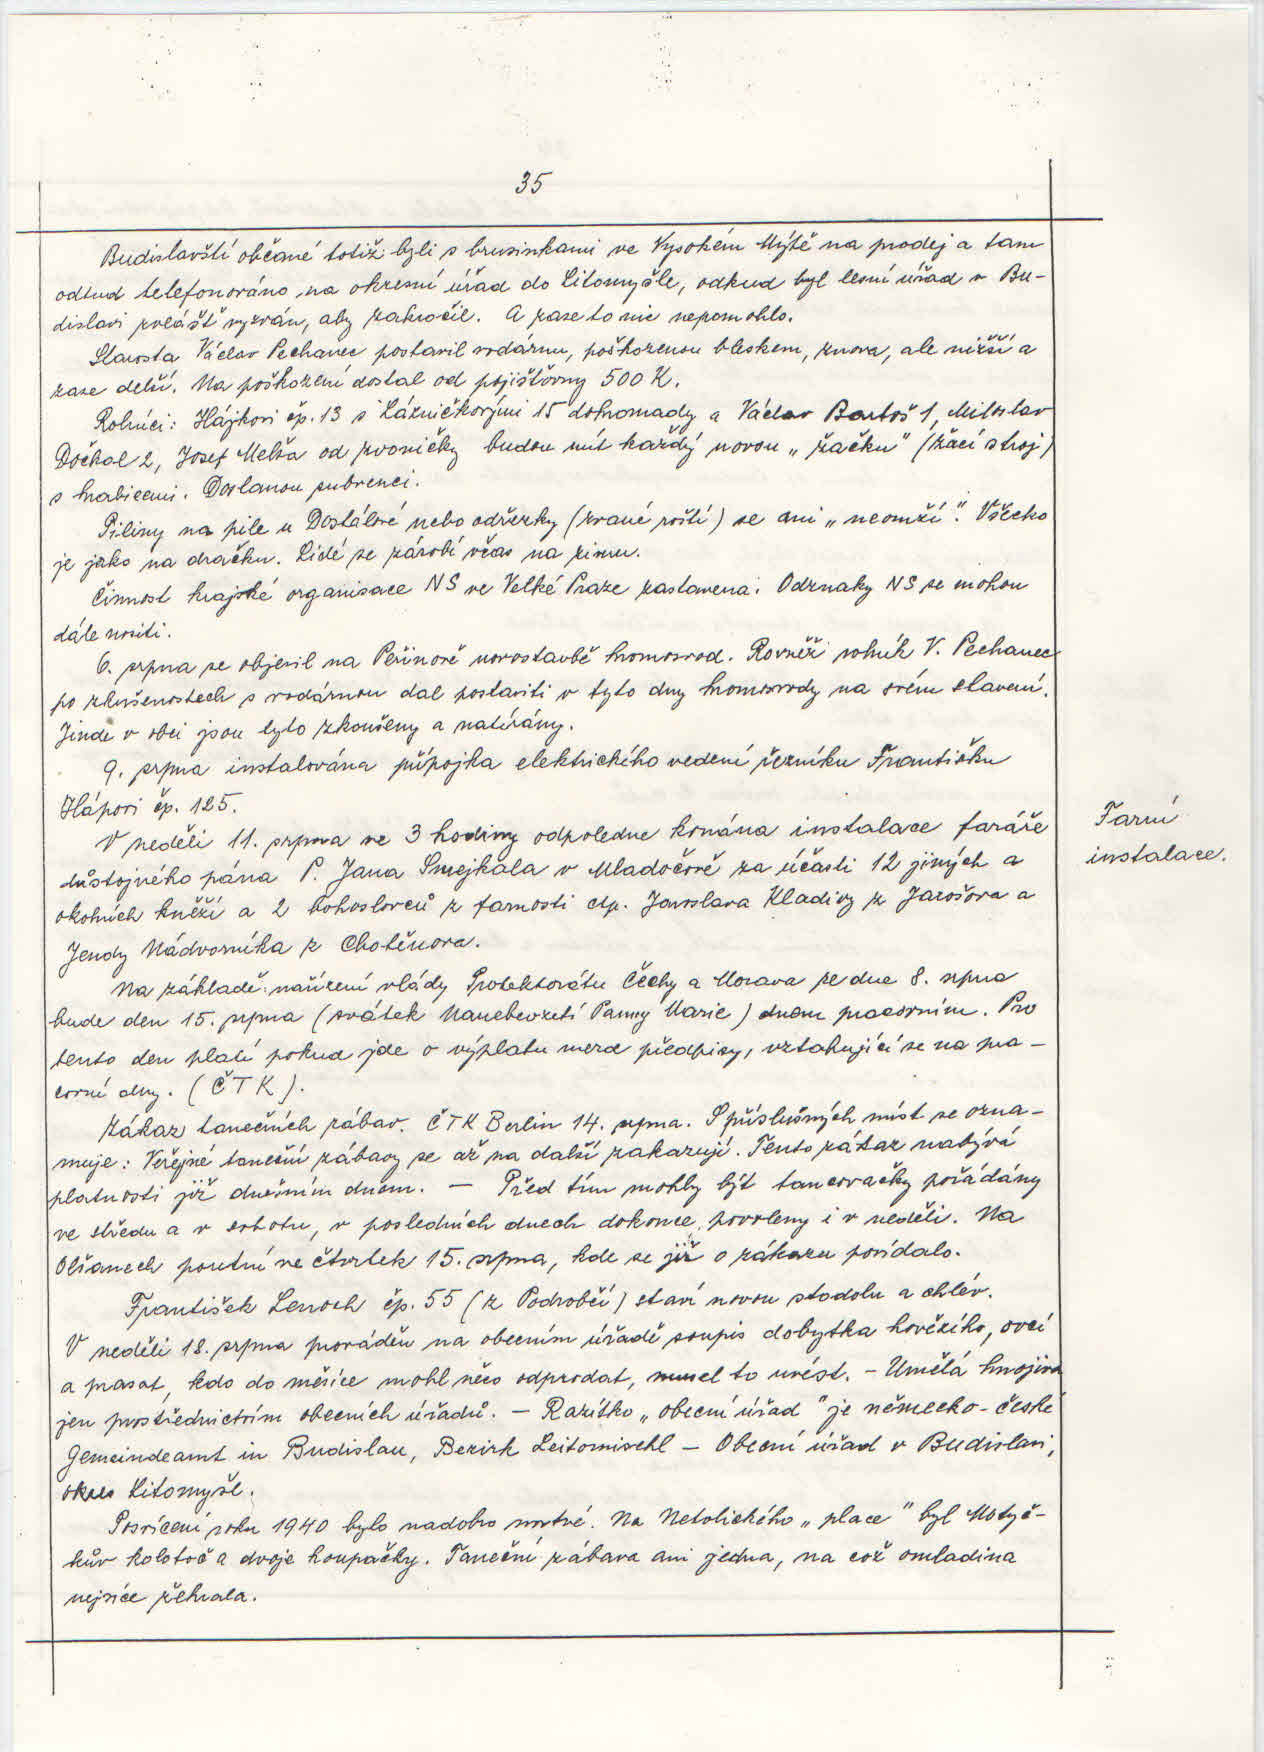 35
Budislavští občané totiž byli s brusinkami ve Vysokém Mýtě na prodej a tam
odtud telefonováno na okresní úřad do Litomyšle, odkud byl lesní úřad v Bu-
dislavi zvlášť vyzván, aby zakročil. A zase to nic nepomohlo.
Starosta Václav Pechanec postavil vodárnu, poškozenou bleskem, znova, ale nižší a
zase delší. Na poškození dostal od pojišťovny 500 K.
Rolníci: Hájkovi čp. 13 s Lázničkovými 15 dohromady a Václav Bartoš 1, Miloslav
Dočkal 2, Josef Melša od zvoničky budou mít každý novou „žačku" (žací stroj)
s hrabicemi. Dostanou subvenci.
Piliny na pile u Dostálové nebo odřezky (zvané roští) se ani „neomží". Všecko
je jako na dračku. Lidé se zásobí včas na zimu.
Činnost krajské organisace NS ve Velké Praze zastavena. Odznaky NS se mohou
dále nositi.
6. srpna se objevil na Peřinově novostavbě hromosvod. Rovněž rolník V. Pechanec
po zkušenostech s vodárnou dal postaviti v tyto dny hromosvody na svém stavení.
Jinde v obci jsou tyto zkoušeny a natírány.
9. srpna instalována přípojka elektrického vedení řezníku Františku
Hápovi čp. 125.
V neděli 11. srpna ve 3 hodiny odpoledne konána instalace faráře
Farní
instalace.
důstojného pána P. Jana Smejkala v Mladočově za účasti 12 jiných a
okolních kněží a 2 bohoslovců z farnosti ctp. Jaroslava Kladivy z Jarošova a
Jendy Nádvorníka z Chotěnova.
Na základě nařízení vlády Protektorátu Čechy a Morava ze dne 8. srpna
bude den 15. srpna (svátek Nanebevzetí Panny Marie) dnem pracovním. Pro
tento den platí pokud jde o výplatu mezd předpisy, vztahující se na pra-
covní dny. (ČTK).
Zákaz tanečních zábav. ČTK Berlin 14. srpna. S příslušných míst se ozna-
muje: Veřejné taneční zábavy se až na další zakazují. Tento zákaz nabývá
platnosti již dnešním dnem. — Před tím mohly být tancovačky pořádány
ve středu a v sobotu, v posledních dnech dokonce povoleny i v neděli. Na
Olšanech poutní ve čtvrtek 15. srpna, kde se již o zákazu povídalo.
František Lenoch čp. 55 (z Podrobčí) staví novou stodolu a chlév.
V neděli 18. srpna prováděn na obecním úřadě soupis dobytka hovězího, ovcí
a prasat, kdo do měsíce mohl něco odprodat, musel to uvést. – Umělá hnojiva
jen prostřednictvím obecních úřadů. – Razítko „obecní úřad" je německo-české
Gemeindeamt in Budislau, Bezirk Leitomischl – Obecní úřad v Budislavi,
okres Litomyšl.
Posvícení roku 1940 bylo nadobro mrtvé. Na Netolického „place" byl Motyč-
kův kolotoč a dvoje houpačky. Taneční zábava ani jedna, na což omladina
nejvíce žehrala.